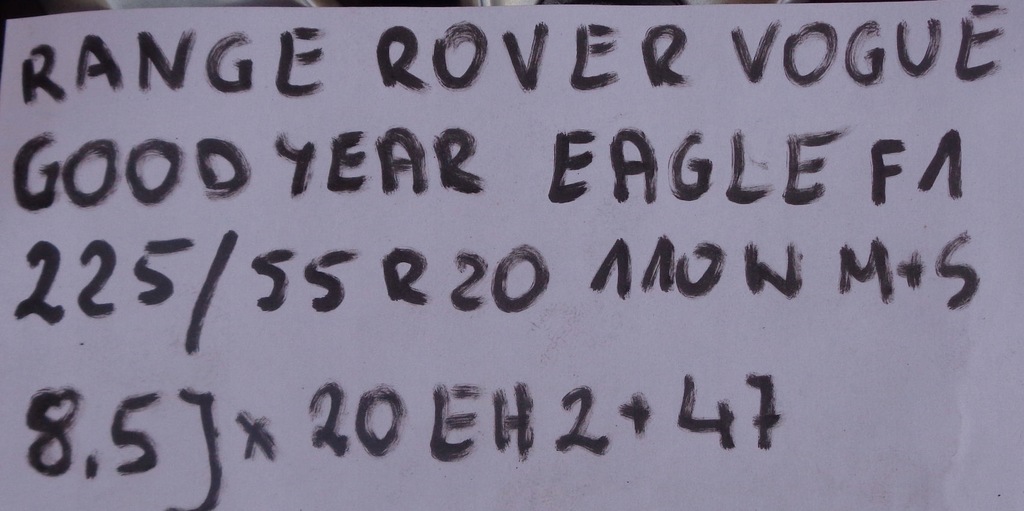 RANGE ROVER VOGUE
GOODYEAR EAGLE F1
225/55 R20 110W M+S
8.5J x 20 EH2+ 47